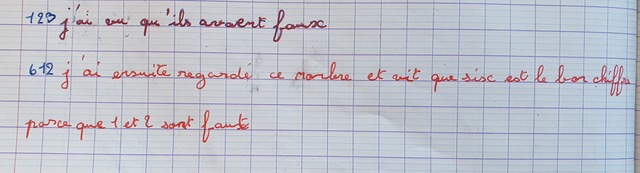 123 j'ai vu qu'ils avaient faux
612 j'ai ensuite regardé ce nombre et vit que sisc est le bon chiffre
parce que 1 et 2 sont faux